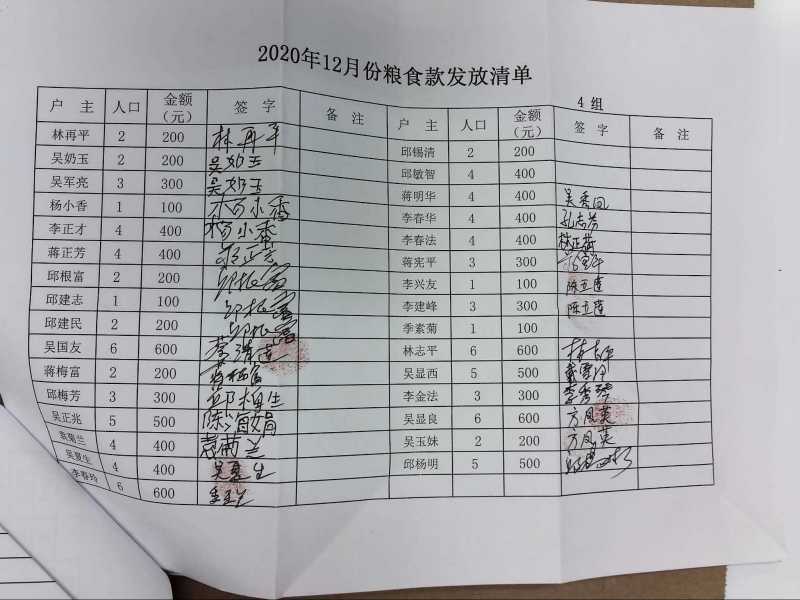 2020年12月份粮食款发放清单
4 组
户 主 人口 金额(元) 签 字 备 注
林再平 2 200 林再平
吴奶玉 2 200 吴奶玉
吴军亮 3 300 吴奶玉
杨小香 1 100 杨小香
李正才 4 400 杨小香
蒋正芳 4 400 蒋正芳
邱根富 2 200 邱根富
邱建志 1 100 邱根富
邱建民 2 200 邱根富
吴国友 6 600
蒋梅富 2 200 蒋梅富
邱梅芳 3 300
吴正兆 5 500 陈海娟
袁菊兰 4 400 袁菊兰
吴夏生 4 400 吴夏生
李春玲 6 600
户 主 人口 金额(元) 签 字 备 注
邱锡清 2 200
邱敏智 4 400
蒋明华 4 400
李春华 4 400 孔志芳
李春法 4 400
蒋宪平 3 300
李兴友 1 100 陈立莲
李建峰 3 300 陈立莲
季素菊 1 100
林志平 6 600 林志平
吴显西 5 500
李金法 3 300 李秀琴
吴显良 6 600 方凤英
吴玉妹 2 200 方凤英
邱杨明 5 500